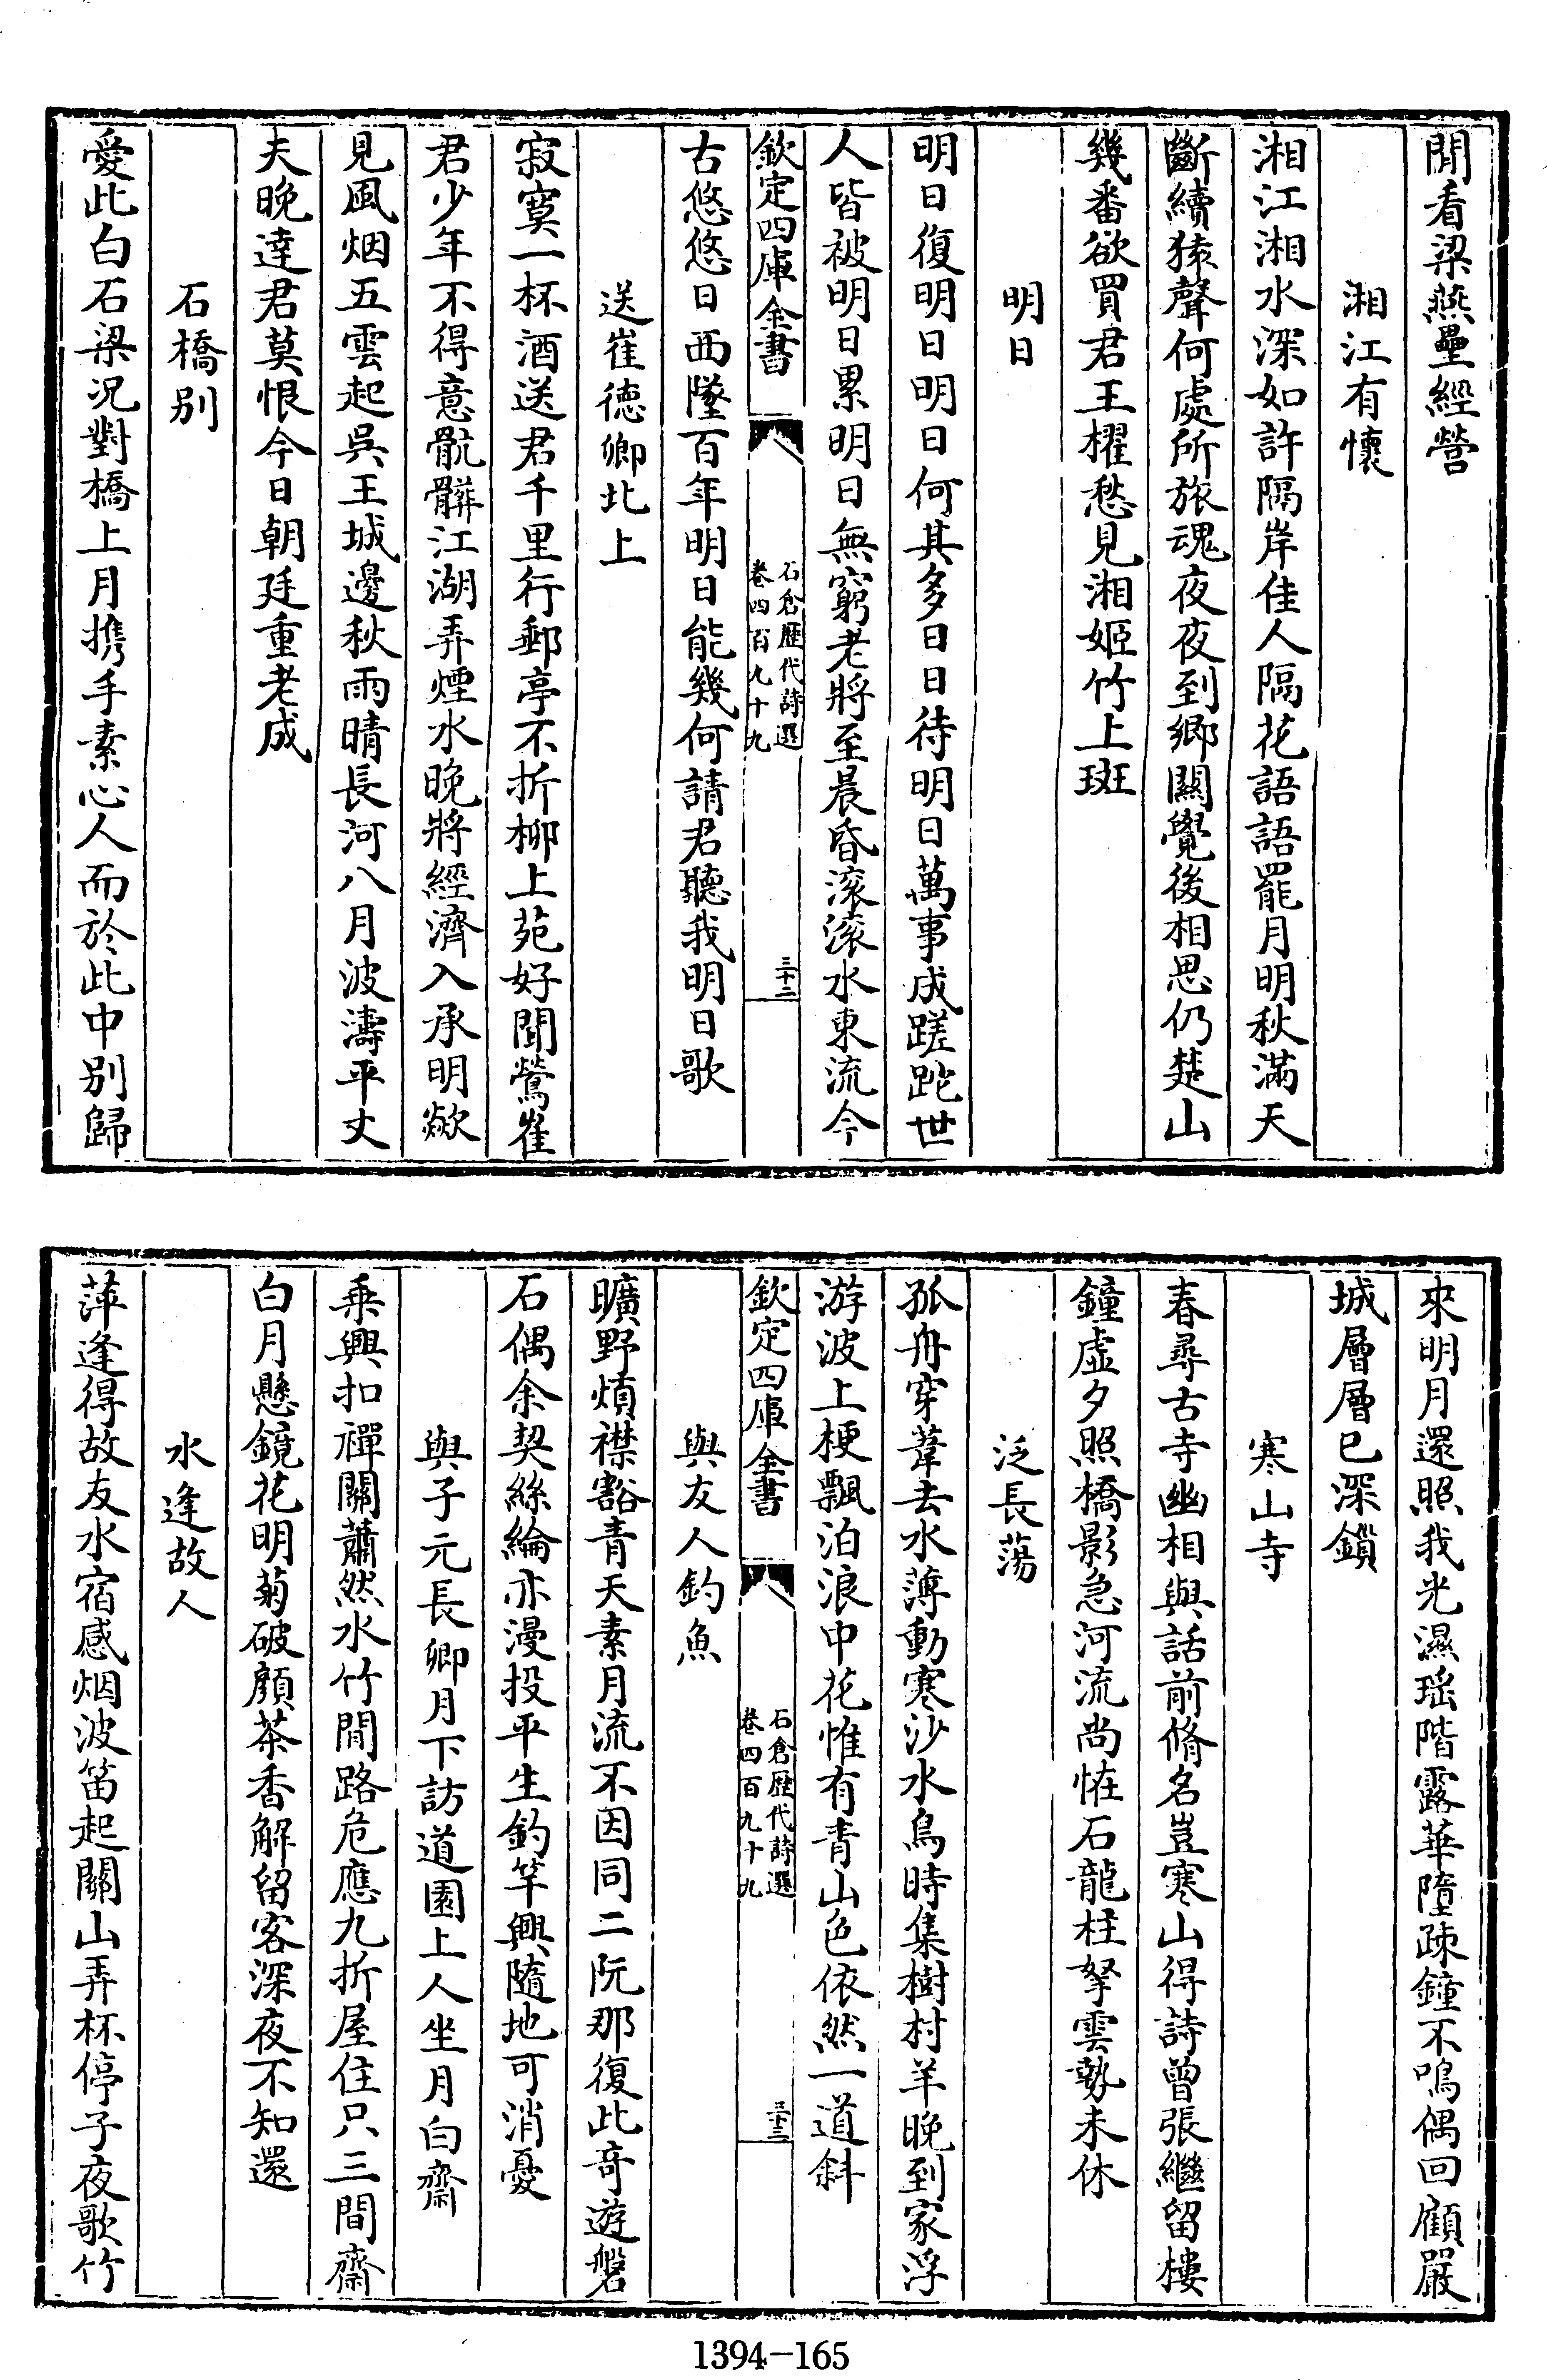 閒看梁燕壘經營
湘江有懷
湘江湘水深如許隔岸佳人隔花語語罷月明秋滿天
斷續猿聲何處所旅魂夜夜到鄉關覺後相思仍楚山
幾番欲買君王櫂愁見湘姬竹上斑
明日
明日復明日明日何其多日日待明日萬事成蹉跎世
人皆被明日累明日無窮老將至晨昏滚滚水東流今
欽定四庫全書
石倉歷代詩選
卷四百九十九
三十二
古悠悠日西墜百年明日能幾何請君聽我明日歌
送崔徳卿北上
寂寞一杯酒送君千里行郵亭不折柳上苑好聞鶯崔
君少年不得意骯髒江湖弄煙水晚將經濟入承明歘
見風烟五雲起吳王城邊秋雨晴長河八月波濤平丈
夫晚達君莫恨今日朝廷重老成
石橋別
愛此白石梁况對橋上月携手素心人而於此中別歸
來明月還照我光濕瑶階露華墮疎鐘不鳴偶回顧嚴
城層層已深鎖
寒山寺
春尋古寺幽相與話前脩名豈寒山得詩曾張繼留樓
鐘虛夕照橋影急河流尚恠石龍柱拏雲勢未休
泛長蕩
孤舟穿葦去水薄動寒沙水鳥時集樹村羊晚到家浮
游波上梗飄泊浪中花惟有青山色依然一道斜
欽定四庫全書
石倉歷代詩選
卷四百九十九
三十三
與友人釣魚
曠野煩襟豁青天素月流不因同二阮那復此竒遊磐
石偶余契絲綸亦漫投平生釣竿興隨地可消憂
與子元長卿月下訪道園上人坐月白齋
乗興扣禪關蕭然水竹閒路危應九折屋住只三間齋
白月懸鏡花明菊破顏茶香解留客深夜不知還
水逢故人
萍逢得故友水宿感烟波笛起關山弄杯停子夜歌竹
1394-165